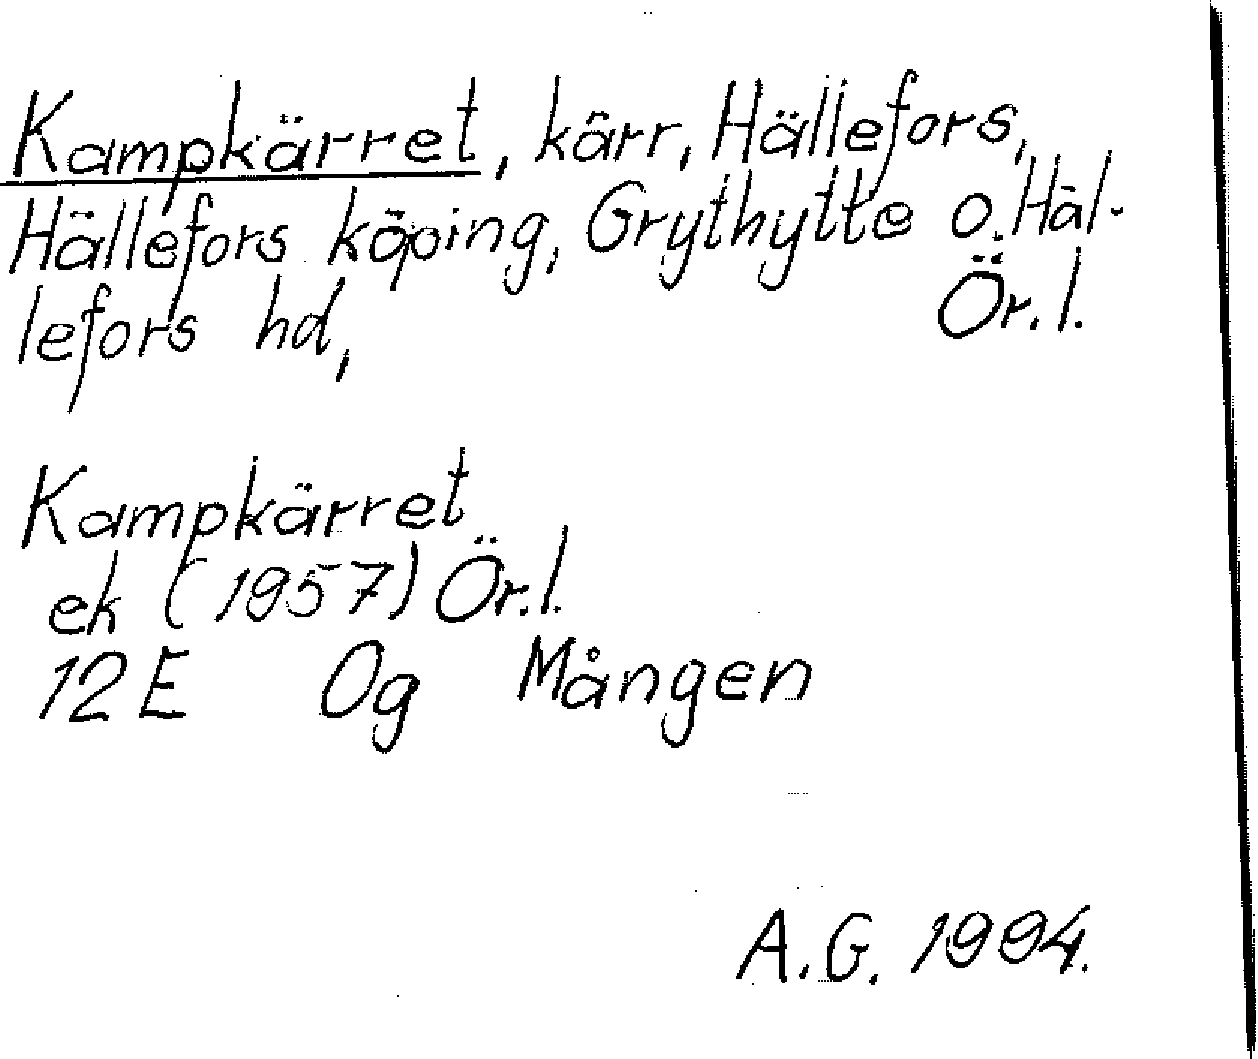 Kampkärret, kärr, Hällefors,
Hällefors köping, Grythytte o. Häl-
lefors hd, Ör. l.
Kampkärret
ek (1957) Ör. l.
12 E Og Mången
A.G. 1994.